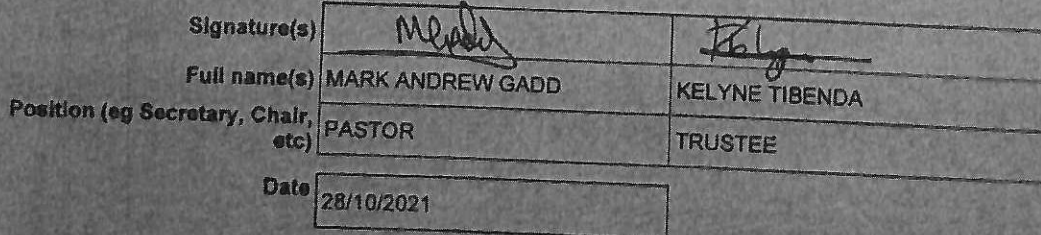 Signature(s)
Full name(s) MARK ANDREW GADD KELYNE TIBENDA
Position (eg Secretary, Chair, etc) PASTOR TRUSTEE
Date 28/10/2021